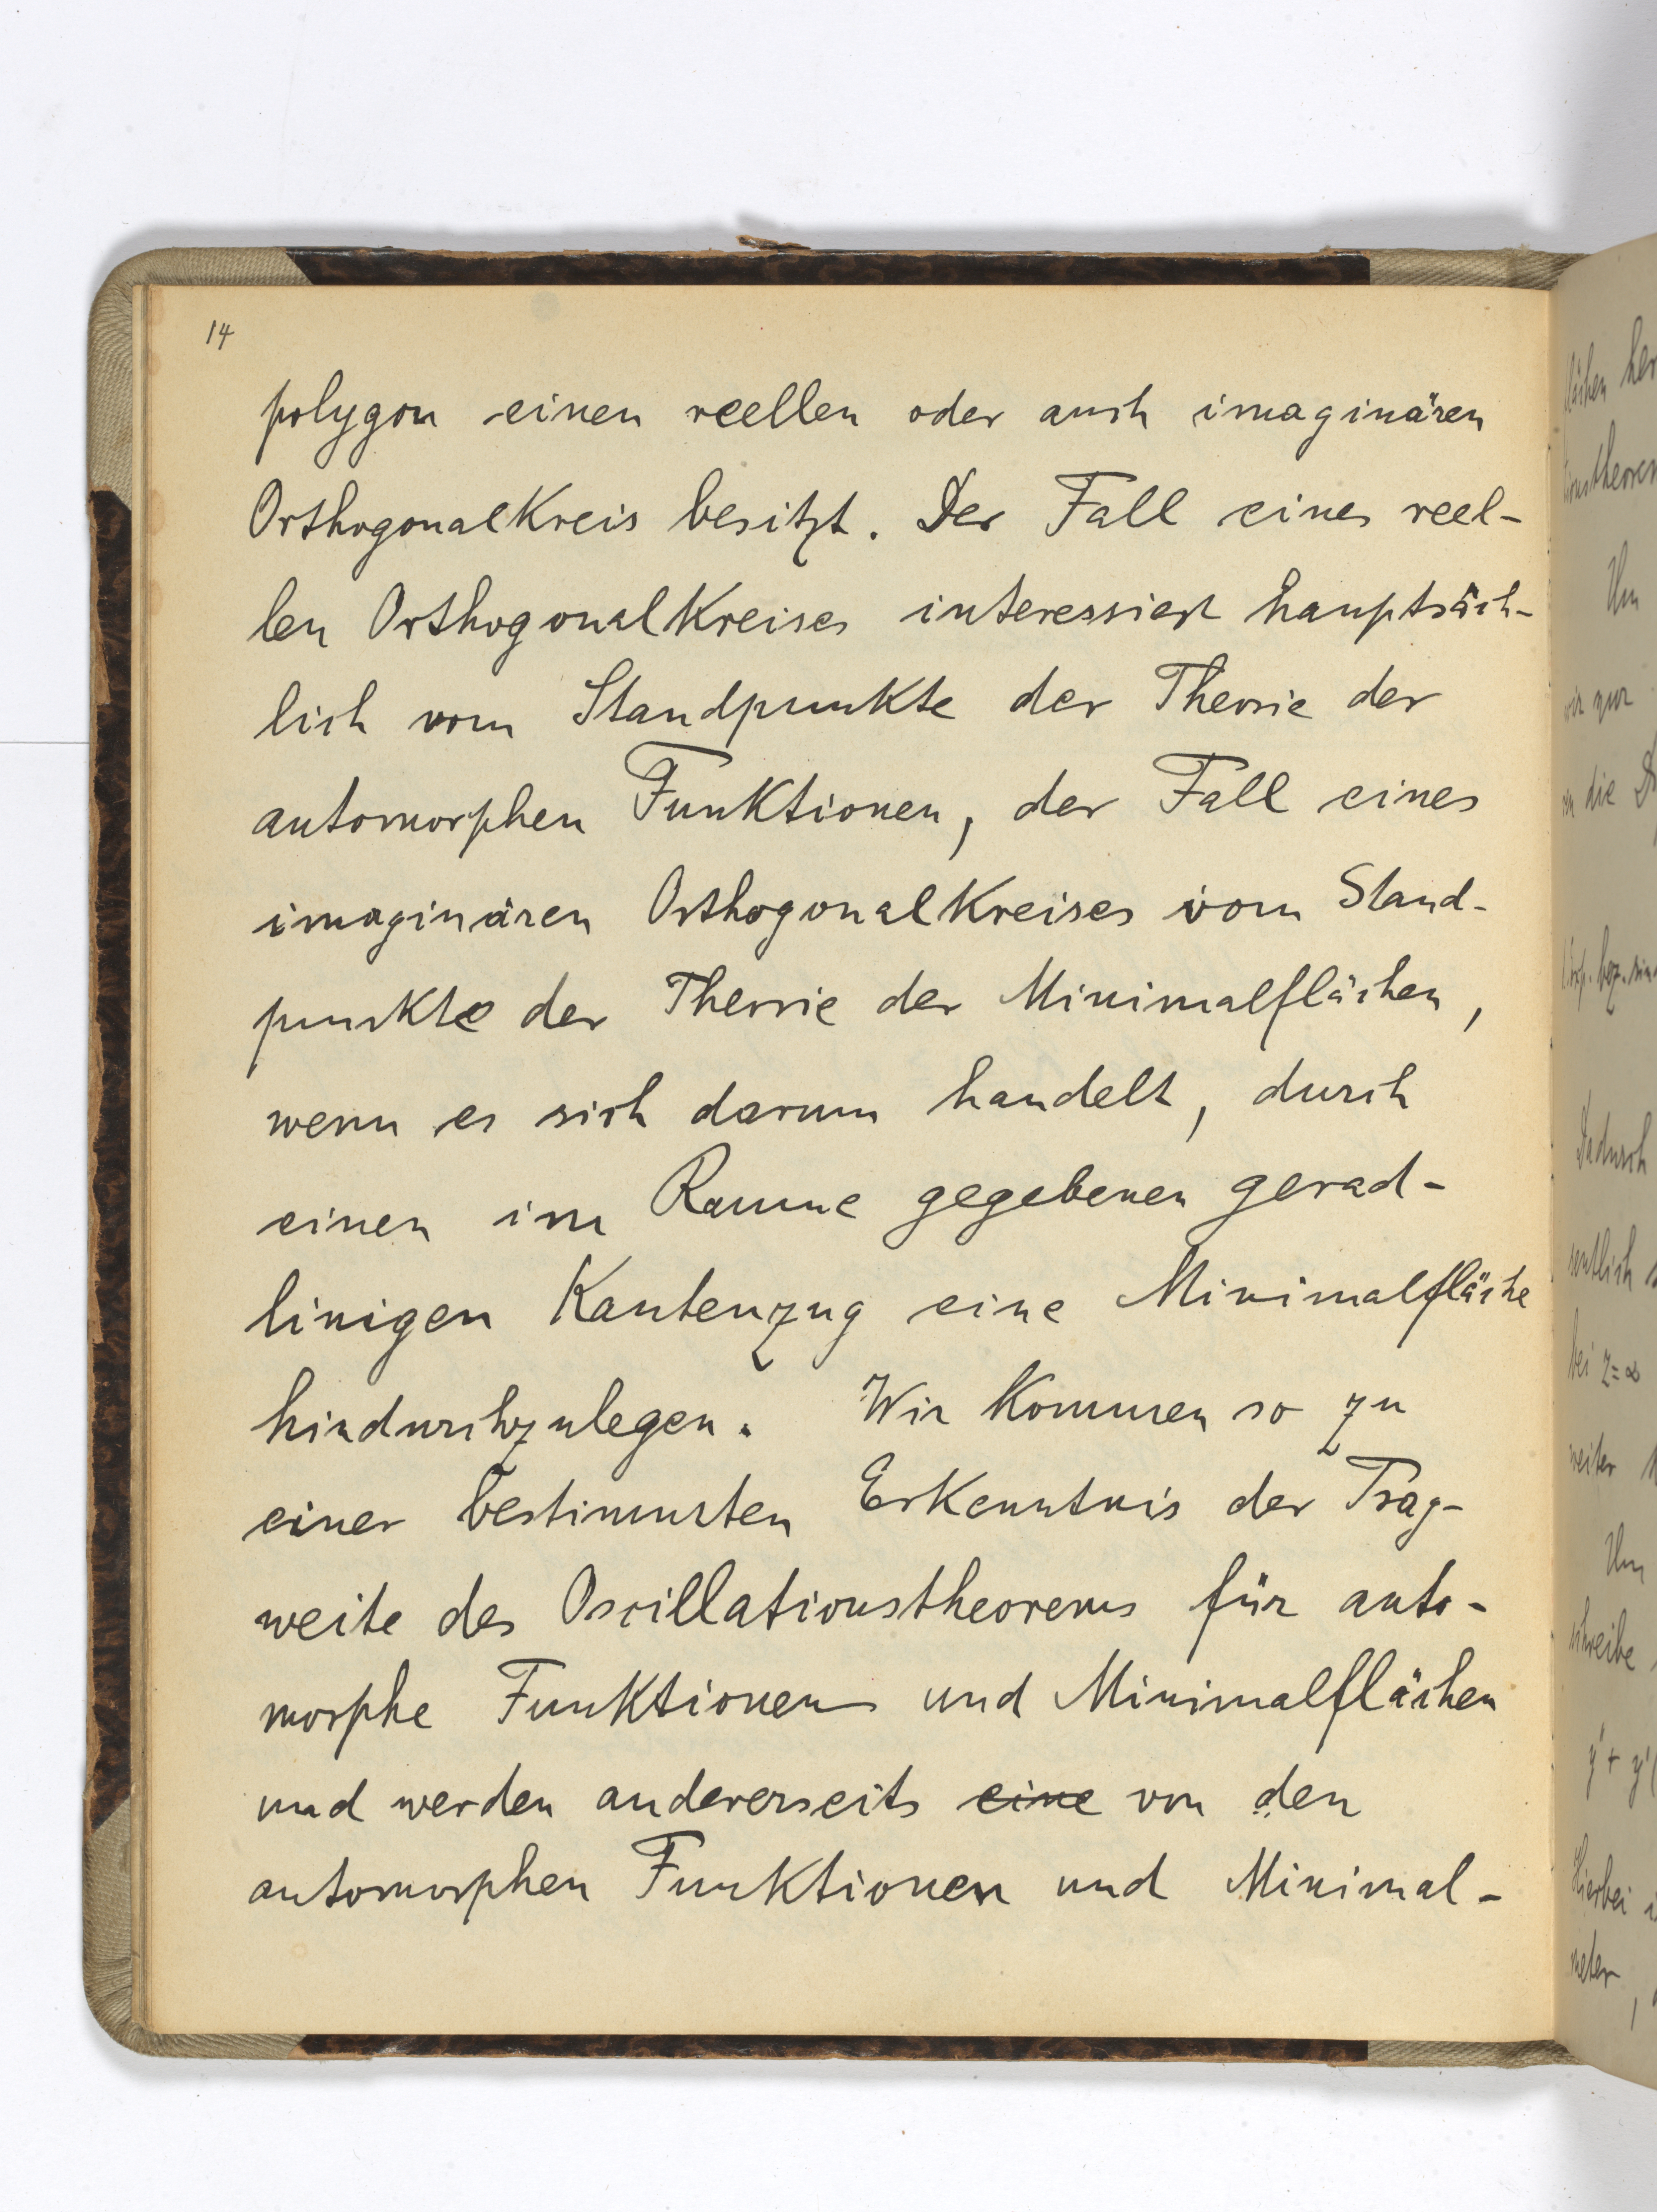 14
polygon einen reellen oder auch imaginären
Orthogonalkreis besitzt. Der Fall eines reel-
len Orthogonalkreises interessiert hauptsäch-
lich vom Standpunkte der Theorie der
automorphen Funktionen, der Fall eines
imaginären Orthogonalkreises vom Stand-
punkte der Theorie der Minimalflächen,
wenn es sich darum handelt, durch
einen im Raume gegebenen gerad-
linigen Kantenzug eine Minimalfläche
hindurchzulegen. Wir kommen so zu
einer bestimmten Erkenntnis der Trag-
weite des Oscillationstheorems für auto-
morphe Funktionen und Minimalflächen
und werden andererseits eine von den
automorphen Funktionen und Minimal-